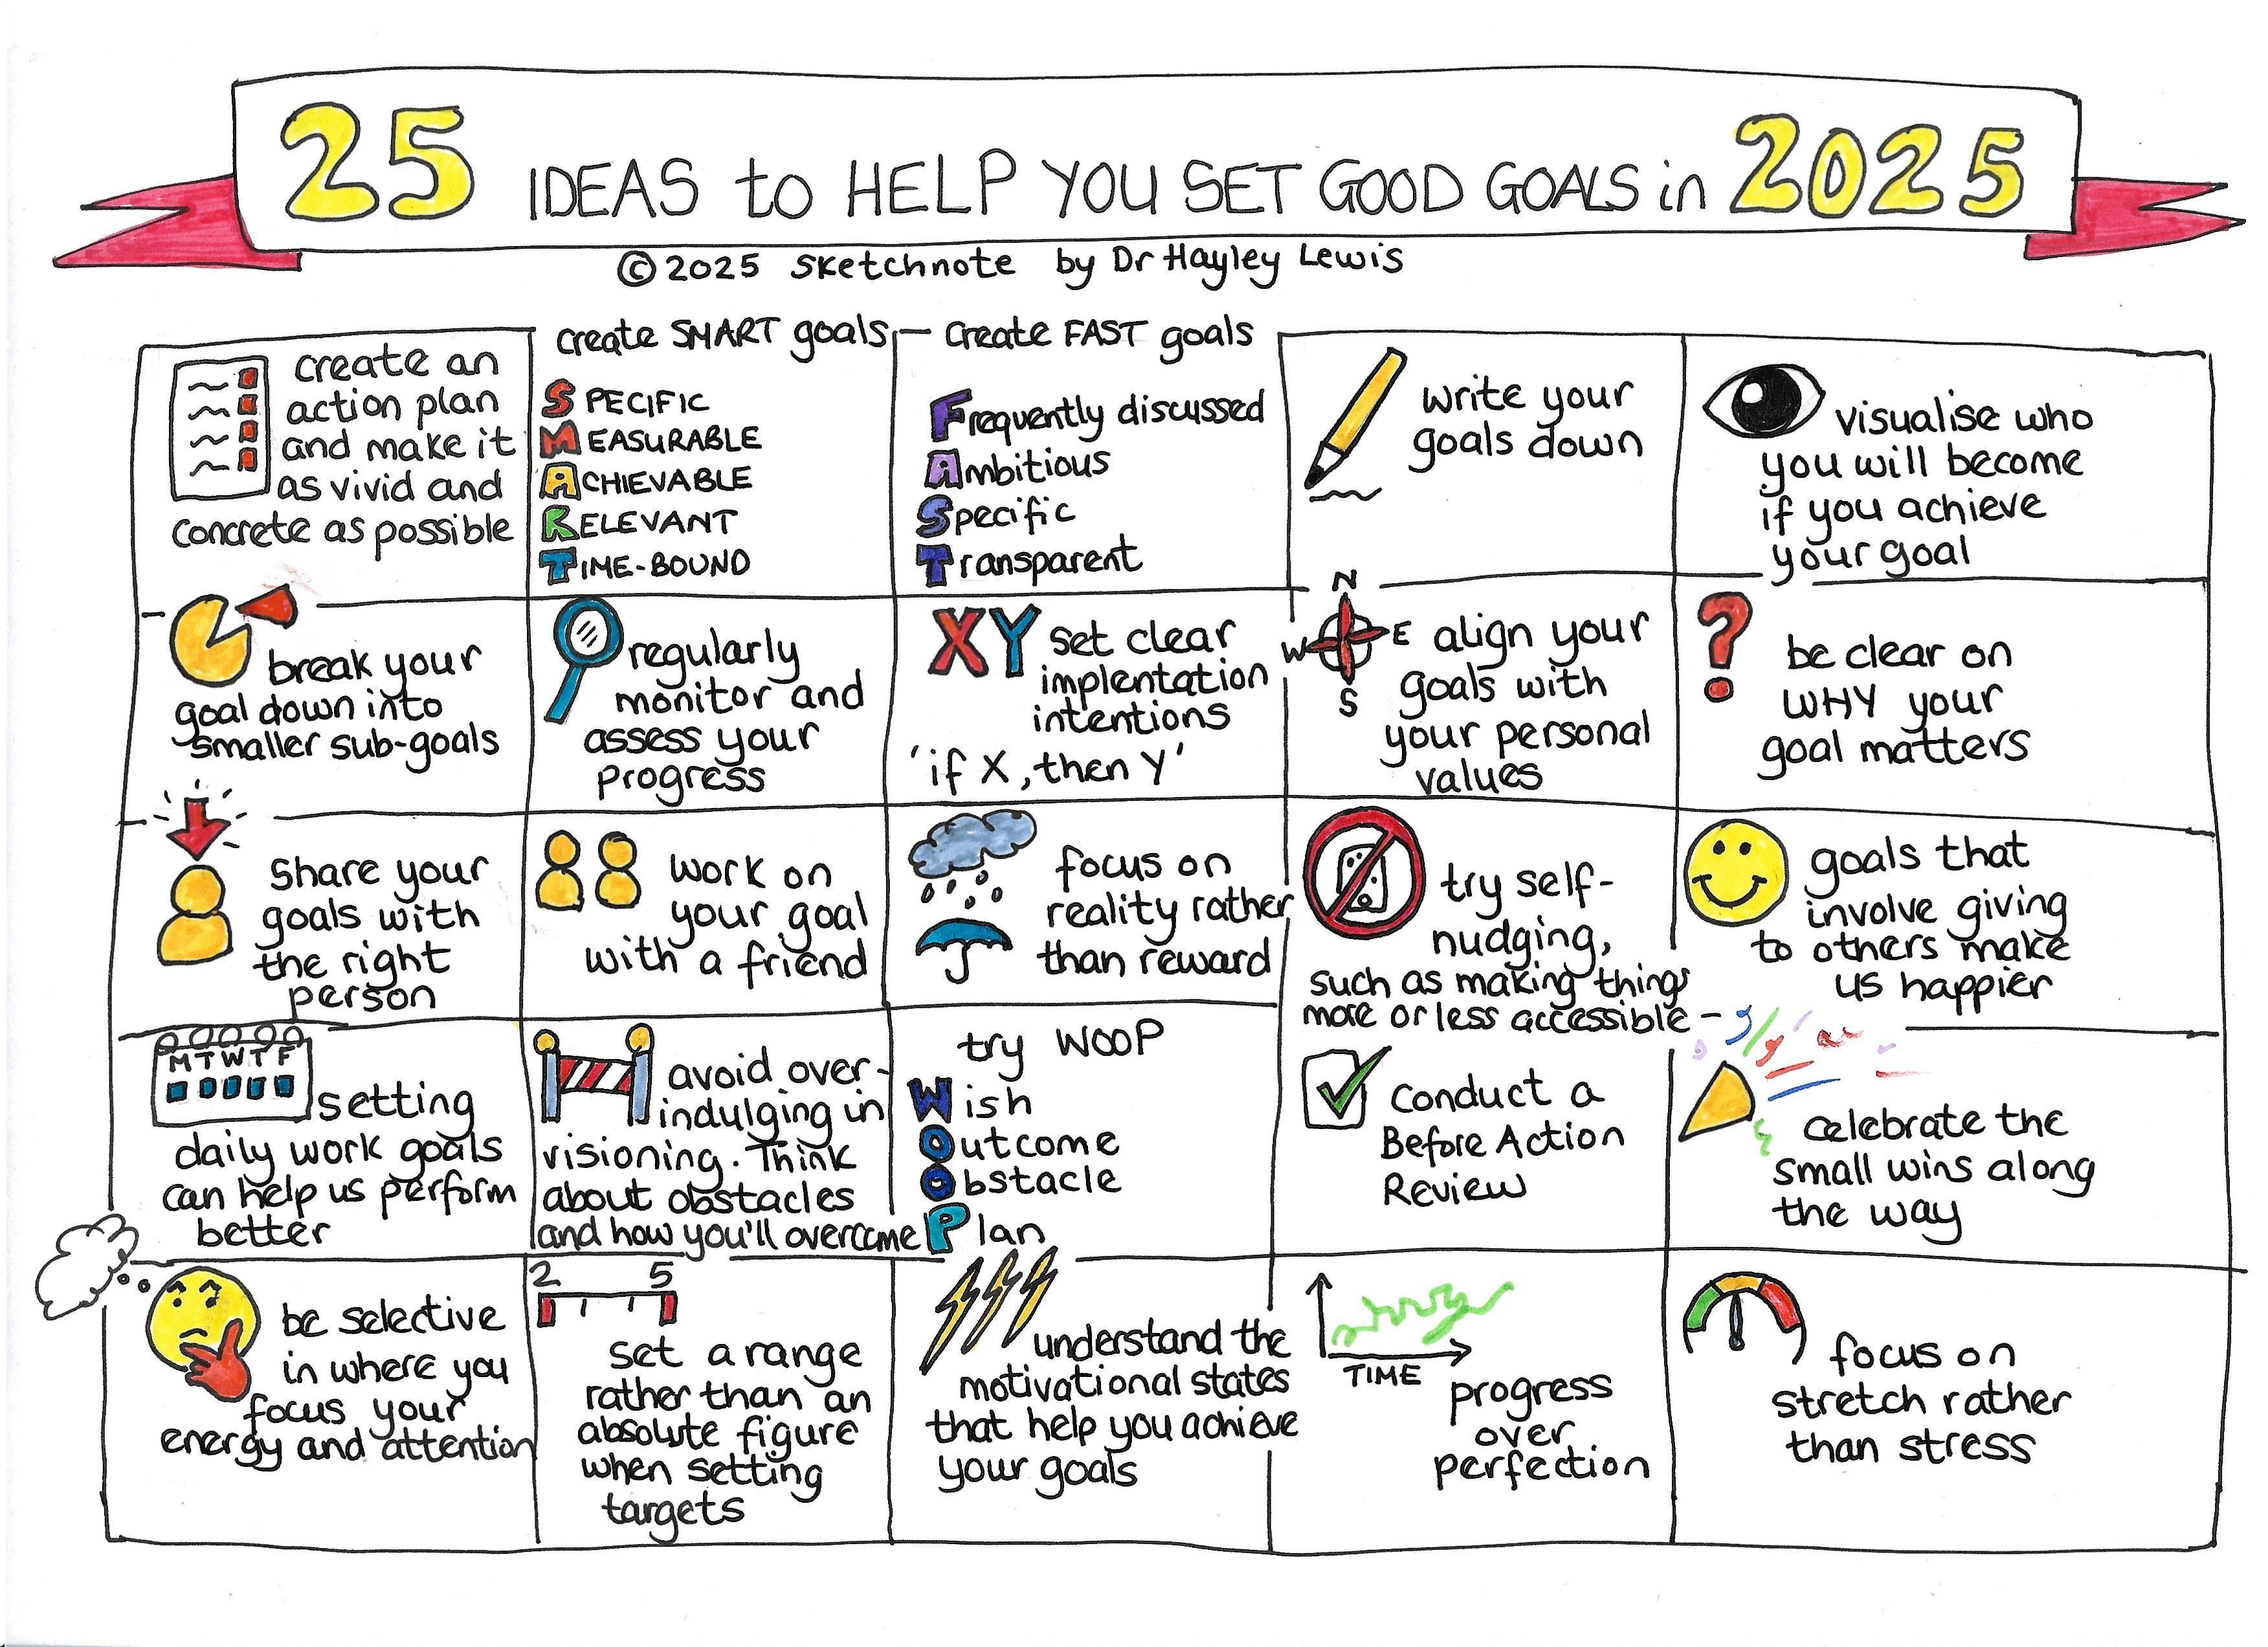 25 IDEAS to HELP YOU SET GOOD GOALS in 2025
© 2025 Sketchnote by Dr Hayley Lewis
create an
action plan
and make it
as vivid and
concrete as possible
create SMART goals
SPECIFIC
MEASURABLE
ACHIEVABLE
RELEVANT
TIME-BOUND
create FAST goals
Frequently discussed
Ambitious
Specific
Transparent
write your
goals down
visualise who
you will become
if you achieve
your goal
break your
goal down into
smaller sub-goals
regularly
monitor and
assess your
progress
XY set clear
implentation
intentions
'if X, then Y'
N
W E
S
align your
goals with
your personal
values
?
be clear on
WHY your
goal matters
share your
goals with
the right
person
work on
your goal
with a friend
focus on
reality rather
than reward
try self-
nudging,
such as making things
more or less accessible
goals that
involve giving
to others make
us happier
M T W T F
setting
daily work goals
can help us perform
better
avoid over-
indulging in
visioning. Think
about obstacles
and how you'll overcome
try WOOP
Wish
Outcome
Obstacle
Plan
conduct a
Before Action
Review
celebrate the
small wins along
the way
be selective
in where you
focus your
energy and attention
2 5
set a range
rather than an
absolute figure
when setting
targets
understand the
motivational states
that help you achieve
your goals
TIME
progress
over
perfection
focus on
stretch rather
than stress